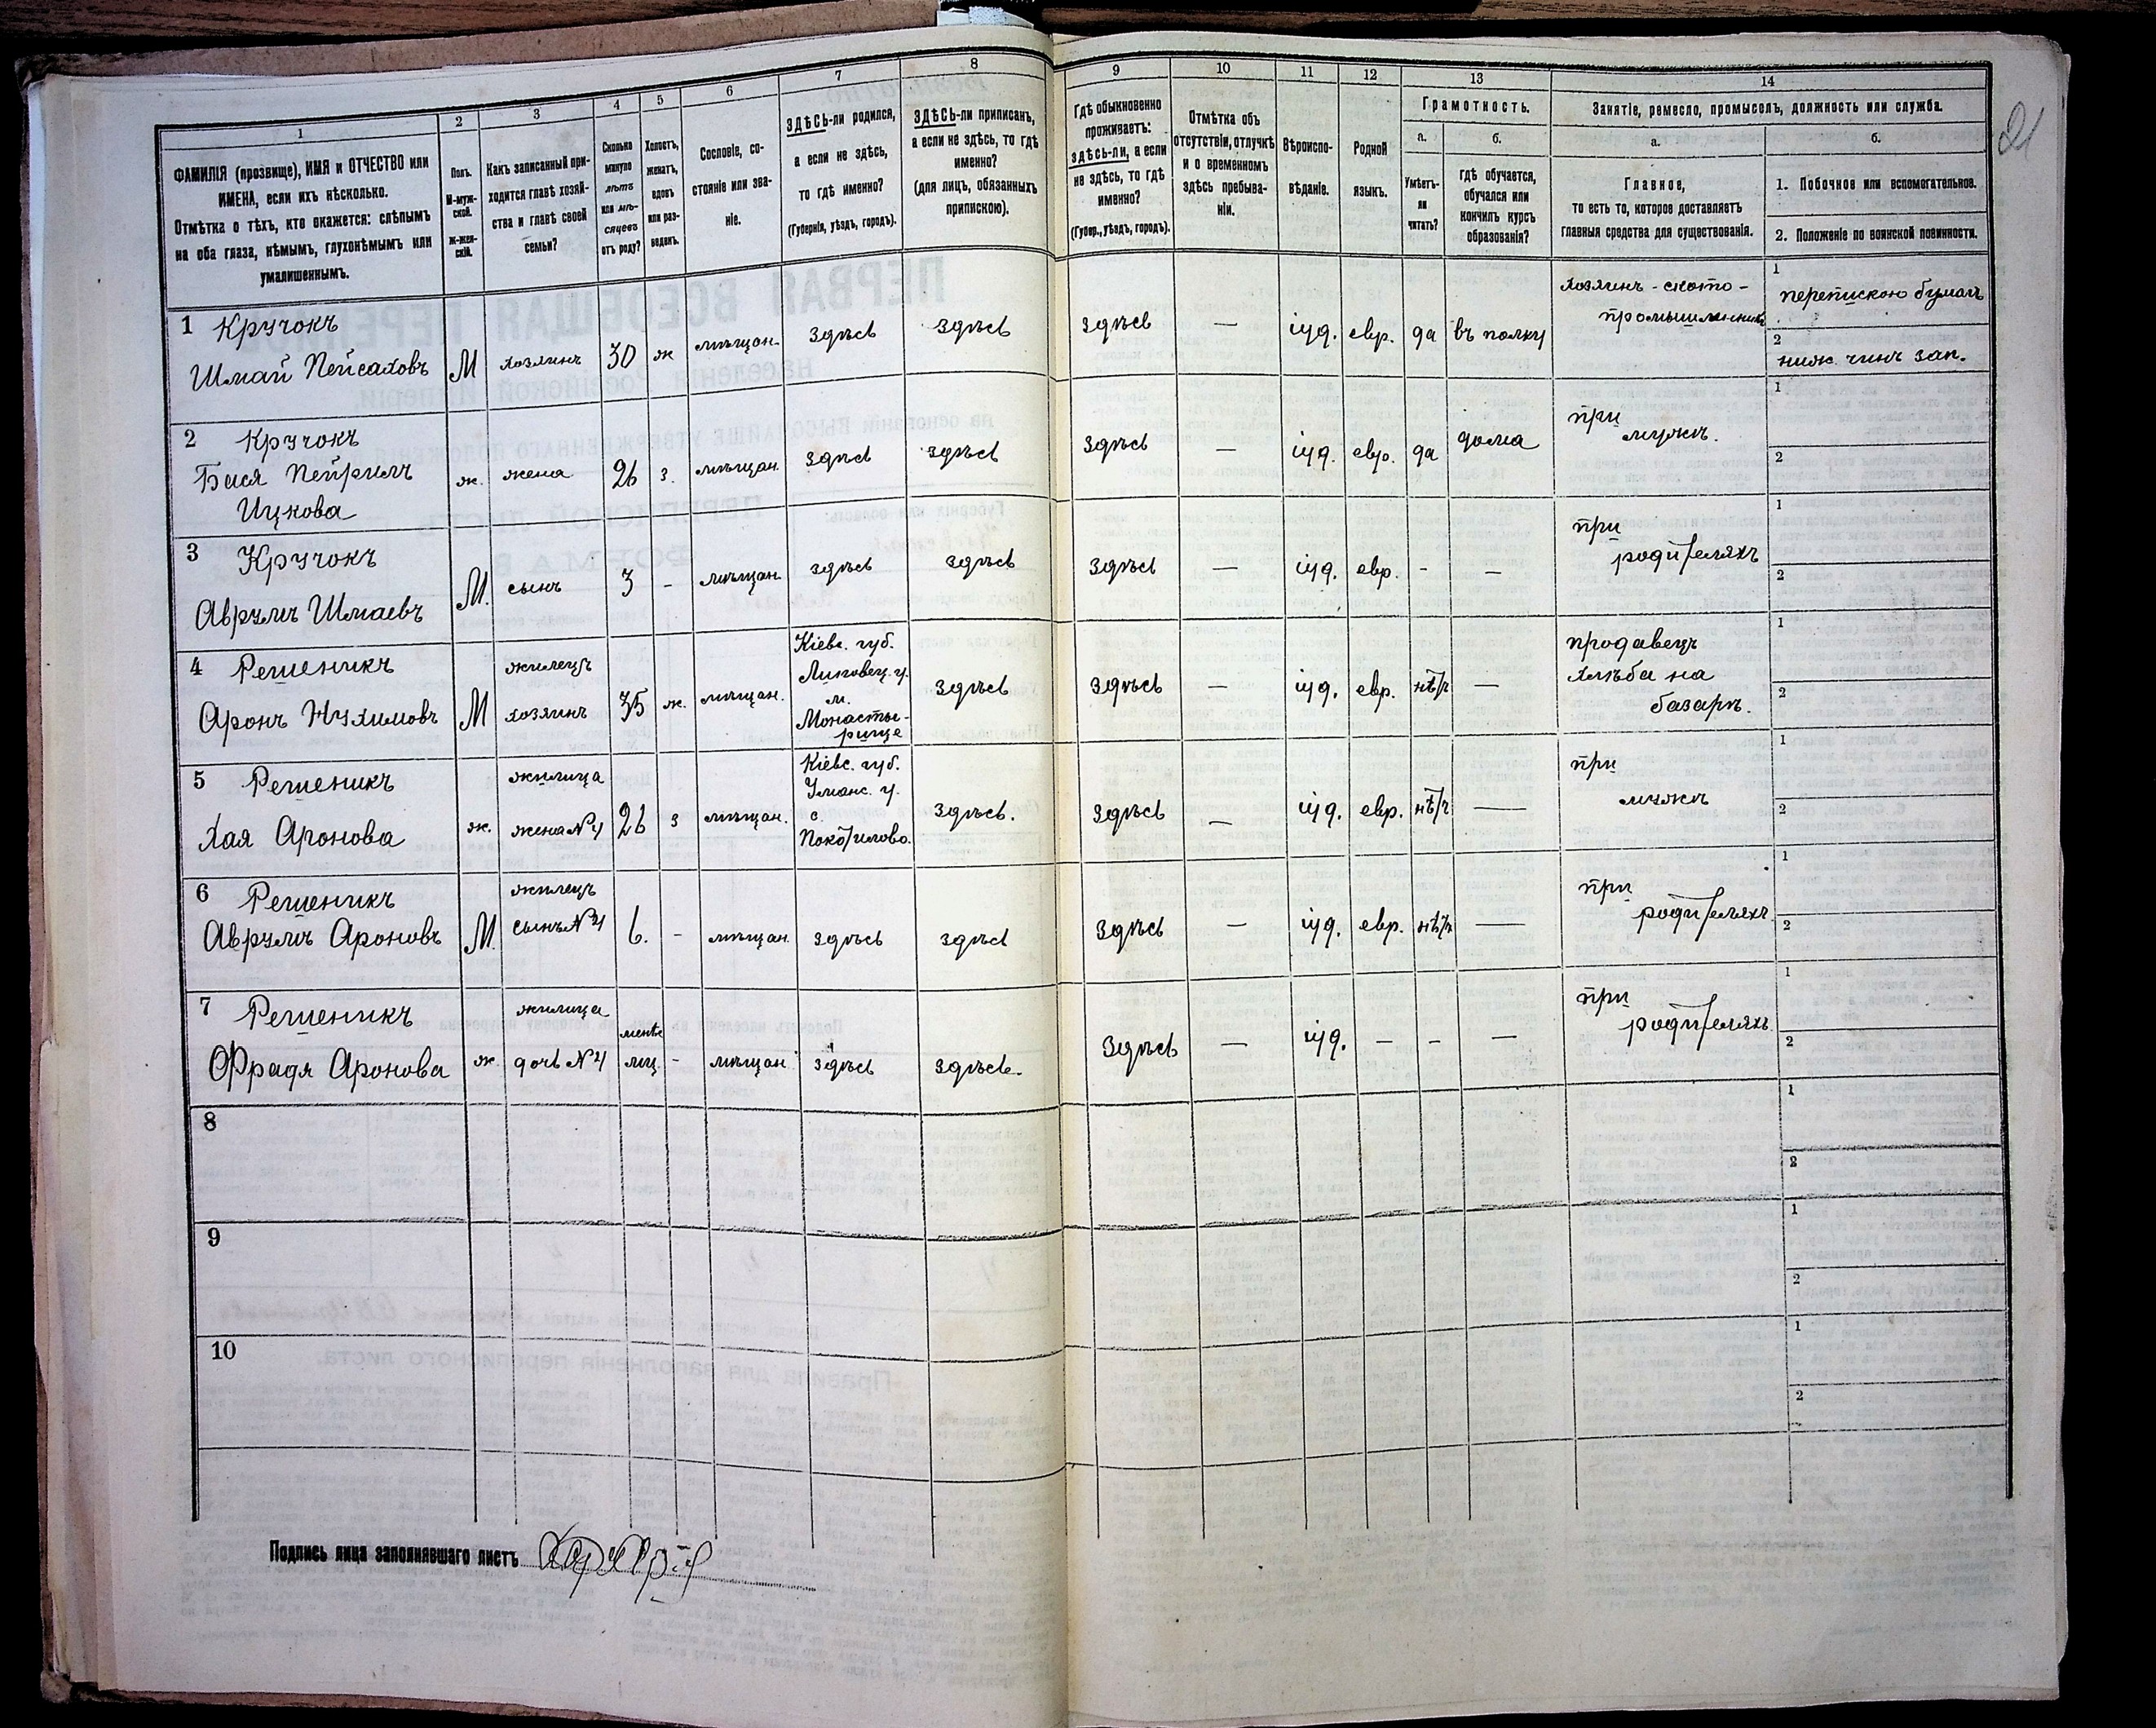 21
1
2
3
4
5
6
7
8
9
10
11
12
13
14
ФАМИЛІЯ (прозвище), ИМЯ и ОТЧЕСТВО или
ИМЕНА, если ихъ нѣсколько.
Отмѣтка о тѣхъ, кто окажется: слѣпымъ
на оба глаза, нѣмымъ, глухонѣмымъ или
умалишеннымъ.
Полъ.
М-муж-
ской.
Ж-жен-
скій.
Какъ записанный при-
ходится главѣ хозяй-
ства и главѣ своей
семьи?
Сколько
минуло
лѣтъ
или мѣ-
сяцевъ
отъ роду?
Холостъ,
женатъ,
вдовъ
или раз-
веденъ.
Сословіе, со-
стояніе или зва-
ніе.
ЗДѢСЬ-ли родился,
а если не здѣсь,
то гдѣ именно?
(Губернія, уѣздъ, городъ).
ЗДѢСЬ-ли приписанъ,
а если не здѣсь, то гдѣ
именно?
(для лицъ, обязанныхъ
припискою).
Гдѣ обыкновенно
проживаетъ:
здѣсь-ли, а если
не здѣсь, то гдѣ
именно?
(Губер., уѣздъ, городъ).
Отмѣтка объ
отсутствіи, отлучкѣ
и о временномъ
здѣсь пребыва-
ніи.
Вѣроиспо-
вѣданіе.
Родной
языкъ.
Грамотность.
а.
Умѣетъ-
ли
читать?
б.
гдѣ обучается,
обучался или
кончилъ курсъ
образованія?
Занятіе, ремесло, промыселъ, должность или служба.
а.
Главное,
то есть то, которое доставляетъ
главныя средства для существованія.
б.
1. Побочное или вспомогательное.
2. Положеніе по воинской повинности.
1 Кручокъ
Шмай Пейсаховъ
М
хозяинъ
30
ж
мѣщан.
здѣсь
здѣсь
здѣсь
—
іуд.
евр.
да
въ полку
хозяинъ - ското-
промышленникъ
1
перепискою бумагъ
2
ниж. чинъ зап.
2 Кручокъ
Бася Пейрилъ
Ицкова
ж.
жена
26
з.
мѣщан.
здѣсь
здѣсь
здѣсь
—
іуд.
евр.
да
дома
при
мужѣ.
1
2
3 Кручокъ
Аврумъ Шмаевъ
М.
сынъ
3
-
мѣщан.
здѣсь
здѣсь
здѣсь
—
іуд.
евр.
-
—
при
родителяхъ
1
2
4 Решеникъ
Аронъ Нухимовъ
М
жилецъ
хозяинъ
35
ж.
мѣщан.
Кіевс. губ.
Липовец. у.
м.
Монасты-
рище
здѣсь
здѣсь
—
іуд.
евр.
нѣтъ
—
продавецъ
хлѣба на
базарѣ.
1
2
5 Решеникъ
Хая Аронова
ж.
жилица
жена №4
26
з
мѣщан.
Кіевс. губ.
Уманс. у.
с.
Покотилово.
здѣсь.
здѣсь
—
іуд.
евр.
нѣтъ
—
при
мужѣ
1
2
6 Решеникъ
Аврумъ Ароновъ
М.
жилецъ
сынъ №4
6.
-
мѣщан.
здѣсь
здѣсь
здѣсь
—
іуд.
евр.
нѣтъ
—
при
родителяхъ
1
2
7 Решеникъ
Фрадя Аронова
ж
жилица
дочь №4
менѣе
мц.
-
мѣщан.
здѣсь
здѣсь.
здѣсь
—
іуд.
—
-
—
при
родителяхъ.
1
2
8
1
2
9
1
2
10
1
2
Подпись лица заполнявшаго листъ